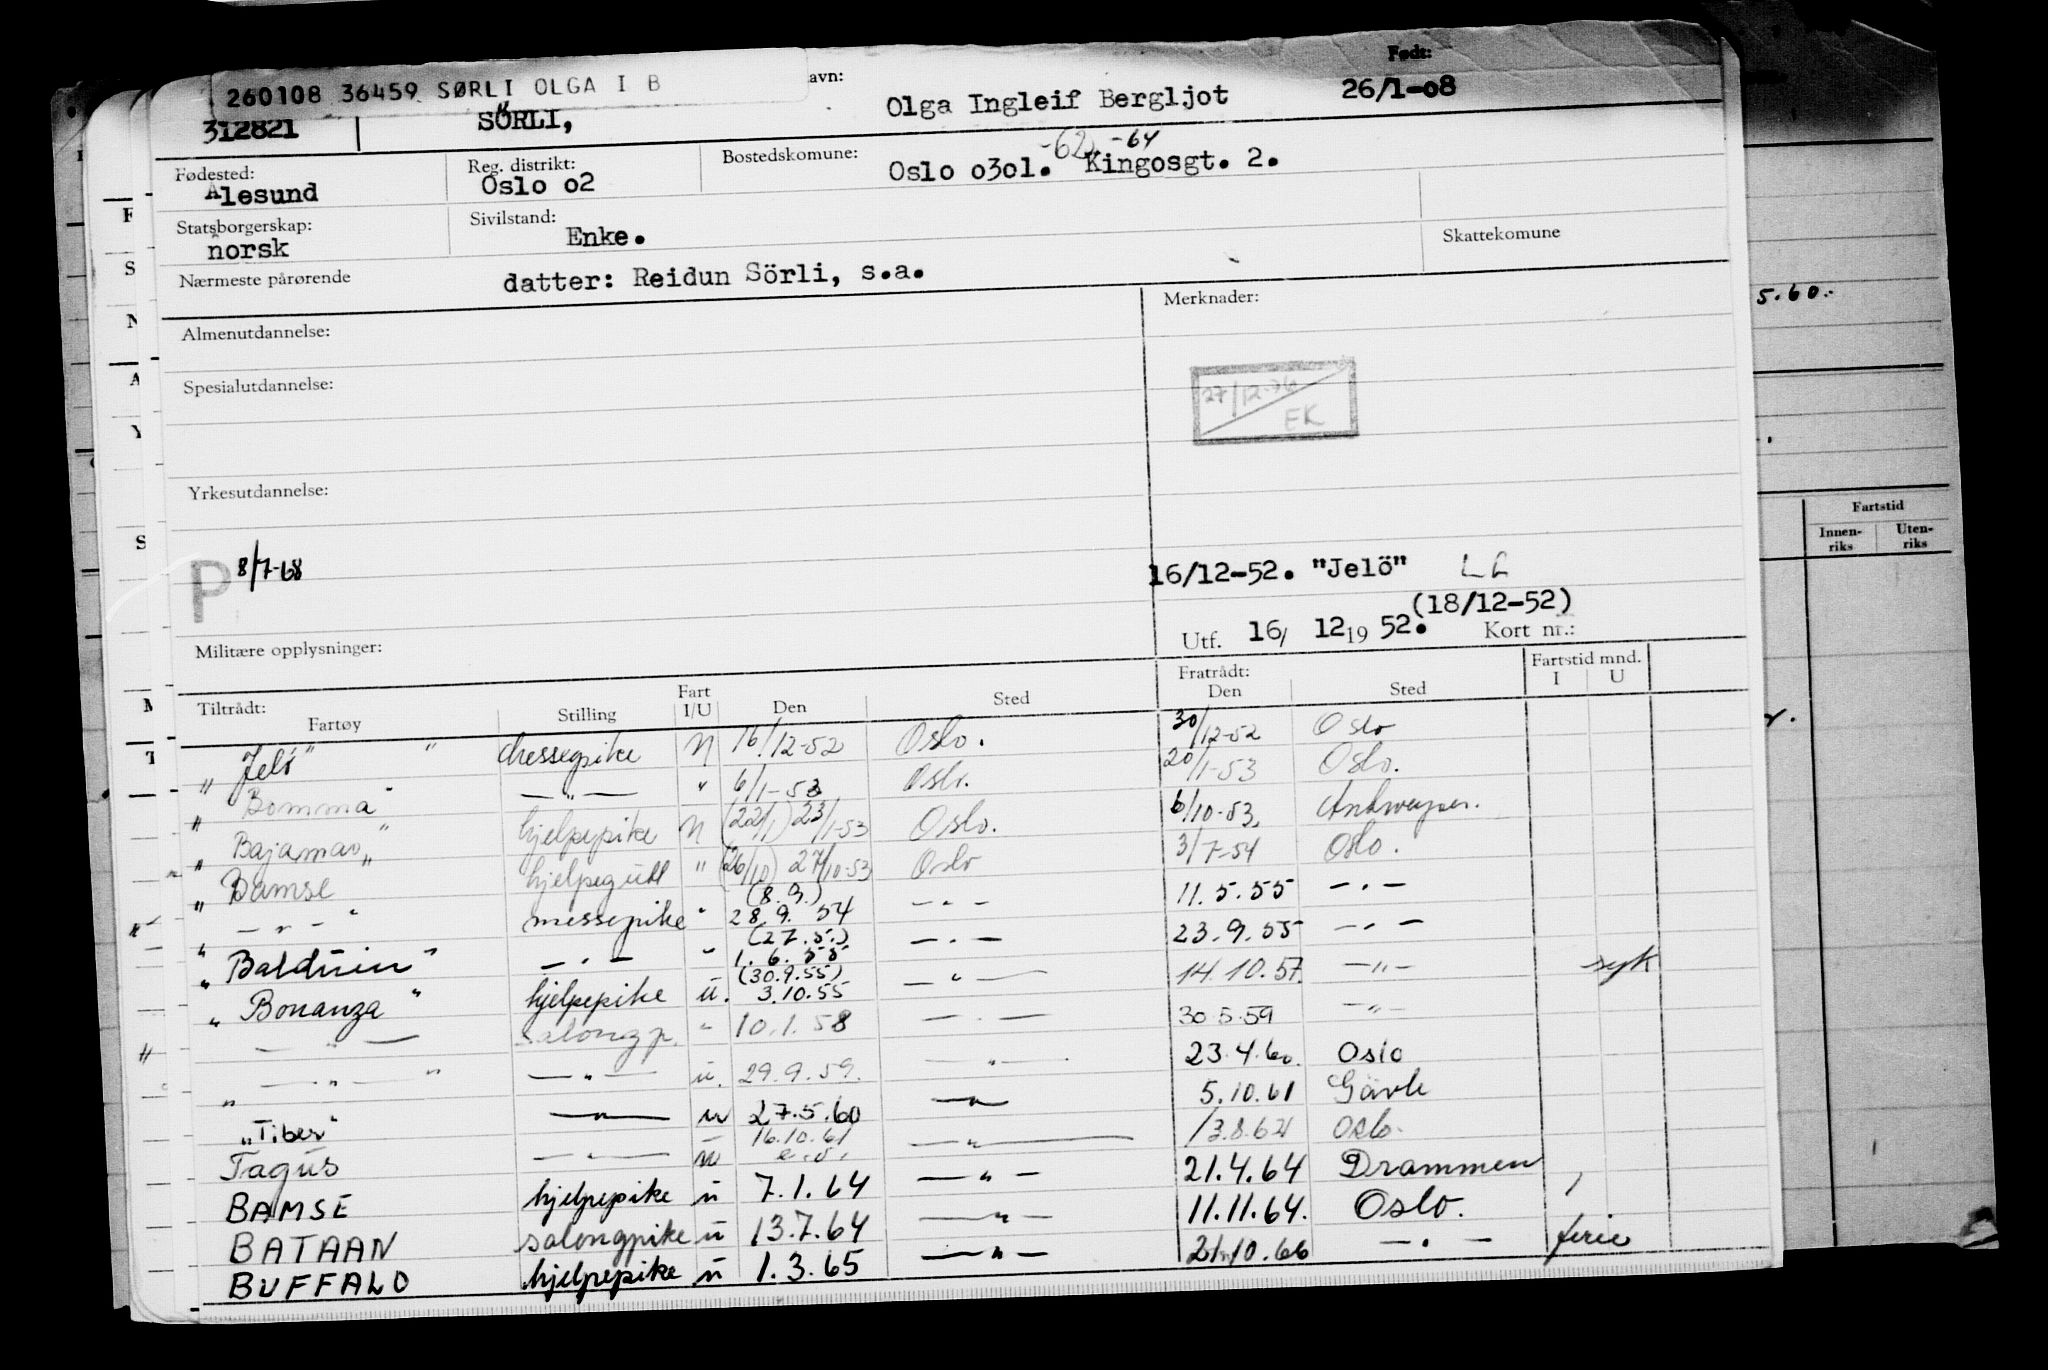 260108 36459 SØRLI OLGA I B
avn:
Født:
312821 SÖRLI, Olga Ingleif Bergljot 26/1-08
Fødested: Reg. distrikt: Bostedskomune: -62 -64
Ålesund Oslo o2 Oslo o3o1. Kingosgt. 2.
Statsborgerskap: Sivilstand: Skattekomune
norsk Enke.
Nærmeste pårørende datter: Reidun Sörli, s.a.
Almenutdannelse: Merknader:
27/12-76
EK
Spesialutdannelse:
Yrkesutdannelse:
P 8/7-68 16/12-52. "Jelö"
(18/12-52)
Utf. 16/ 12 19 52. Kort nr.:
Militære opplysninger:
Tiltrådt: Fratrådt: Fartstid mnd.
Fartøy Stilling Fart I/U Den Sted Den Sted I U
"Jelö" messepike N 16/12-52 Oslo. 30/12-52 Oslo
"Bomma" — " — " 6/1-53 Oslo. 20/1-53 Oslo.
"Bajamar" hjelpepike N (22/1) 23/1-53 Oslo. 6/10-53. Antwerpen.
"Bamse hjelpegutt " (26/10) 27/10-53 Oslo 3/7-54 Oslo.
" — " — " messepike " (8.9.) 28.9.54 — " — 11.5.55 — " —
"Balduin" — " — " (27.5.) 1.6.55 — " — 23.9.55 — " —
"Bonanza" hjelpepike u. (30.9.55) 3.10.55 — " — 14.10.57. — " — syk
— " — salongp. " 10.1.58 — " — 30.5.59 — " —
— " — " — " — u. 29.9.59. " 23.4.60. Oslo
"Tiber" — " — u 27.5.60 — " — 5.10.61 Gävle
Tagus — " — u 16.10.61 — " — 13.8.62 Oslo.
BAMSE hjelpepike u 7.1.64 — " — 21.4.64 Drammen
BATAAN salongpike u 13.7.64 — " — 11.11.64. Oslo.
BUFFALO hjelpepike u 1.3.65 — " — 21.10.66 — " — ferie
5.60.-
Fartstid
Innen-riks Uten-riks